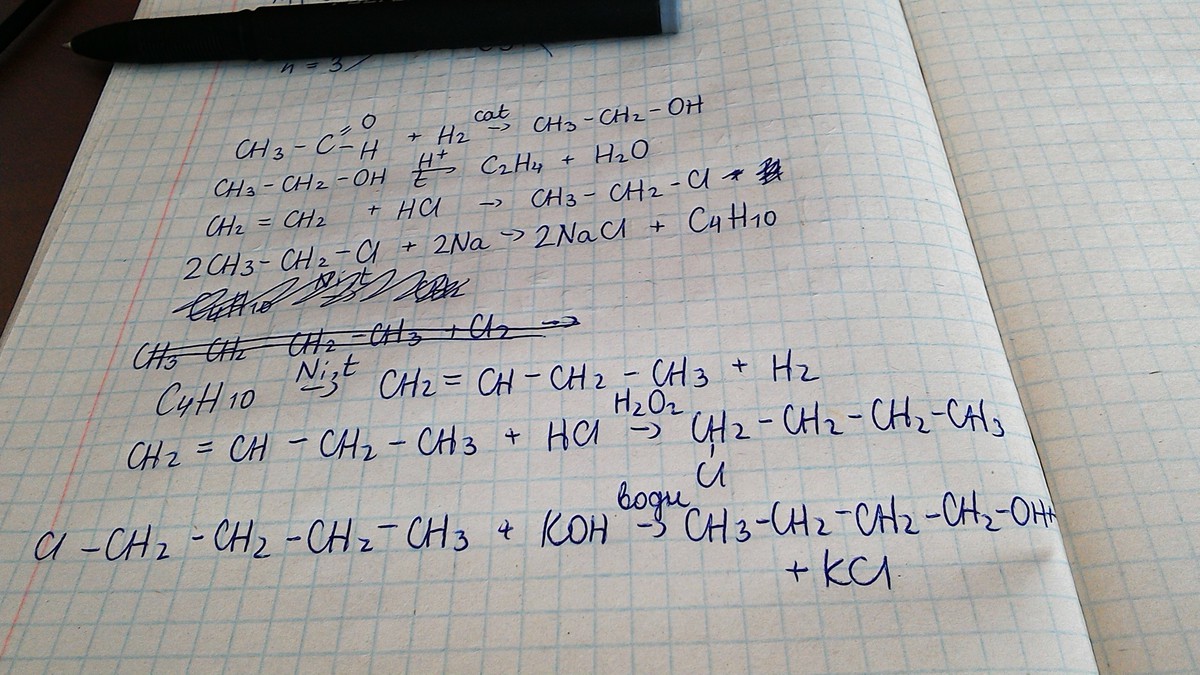 n = 3
CH3 - C =O - H + H2 cat → CH3 - CH2 - OH
CH3 - CH2 - OH H+ t → C2H4 + H2O
CH2 = CH2 + HCl → CH3 - CH2 - Cl
2CH3 - CH2 - Cl + 2Na → 2NaCl + C4H10
CH3 CH2 CH2 - CH3 + Cl2 →
C4H10 Ni,t → CH2 = CH - CH2 - CH3 + H2
CH2 = CH - CH2 - CH3 + HCl H2O2 → CH2 - CH2 - CH2 - CH3
Cl
Cl - CH2 - CH2 - CH2 - CH3 + KOH водн → CH3 - CH2 - CH2 - CH2 - OH +
+ KCl